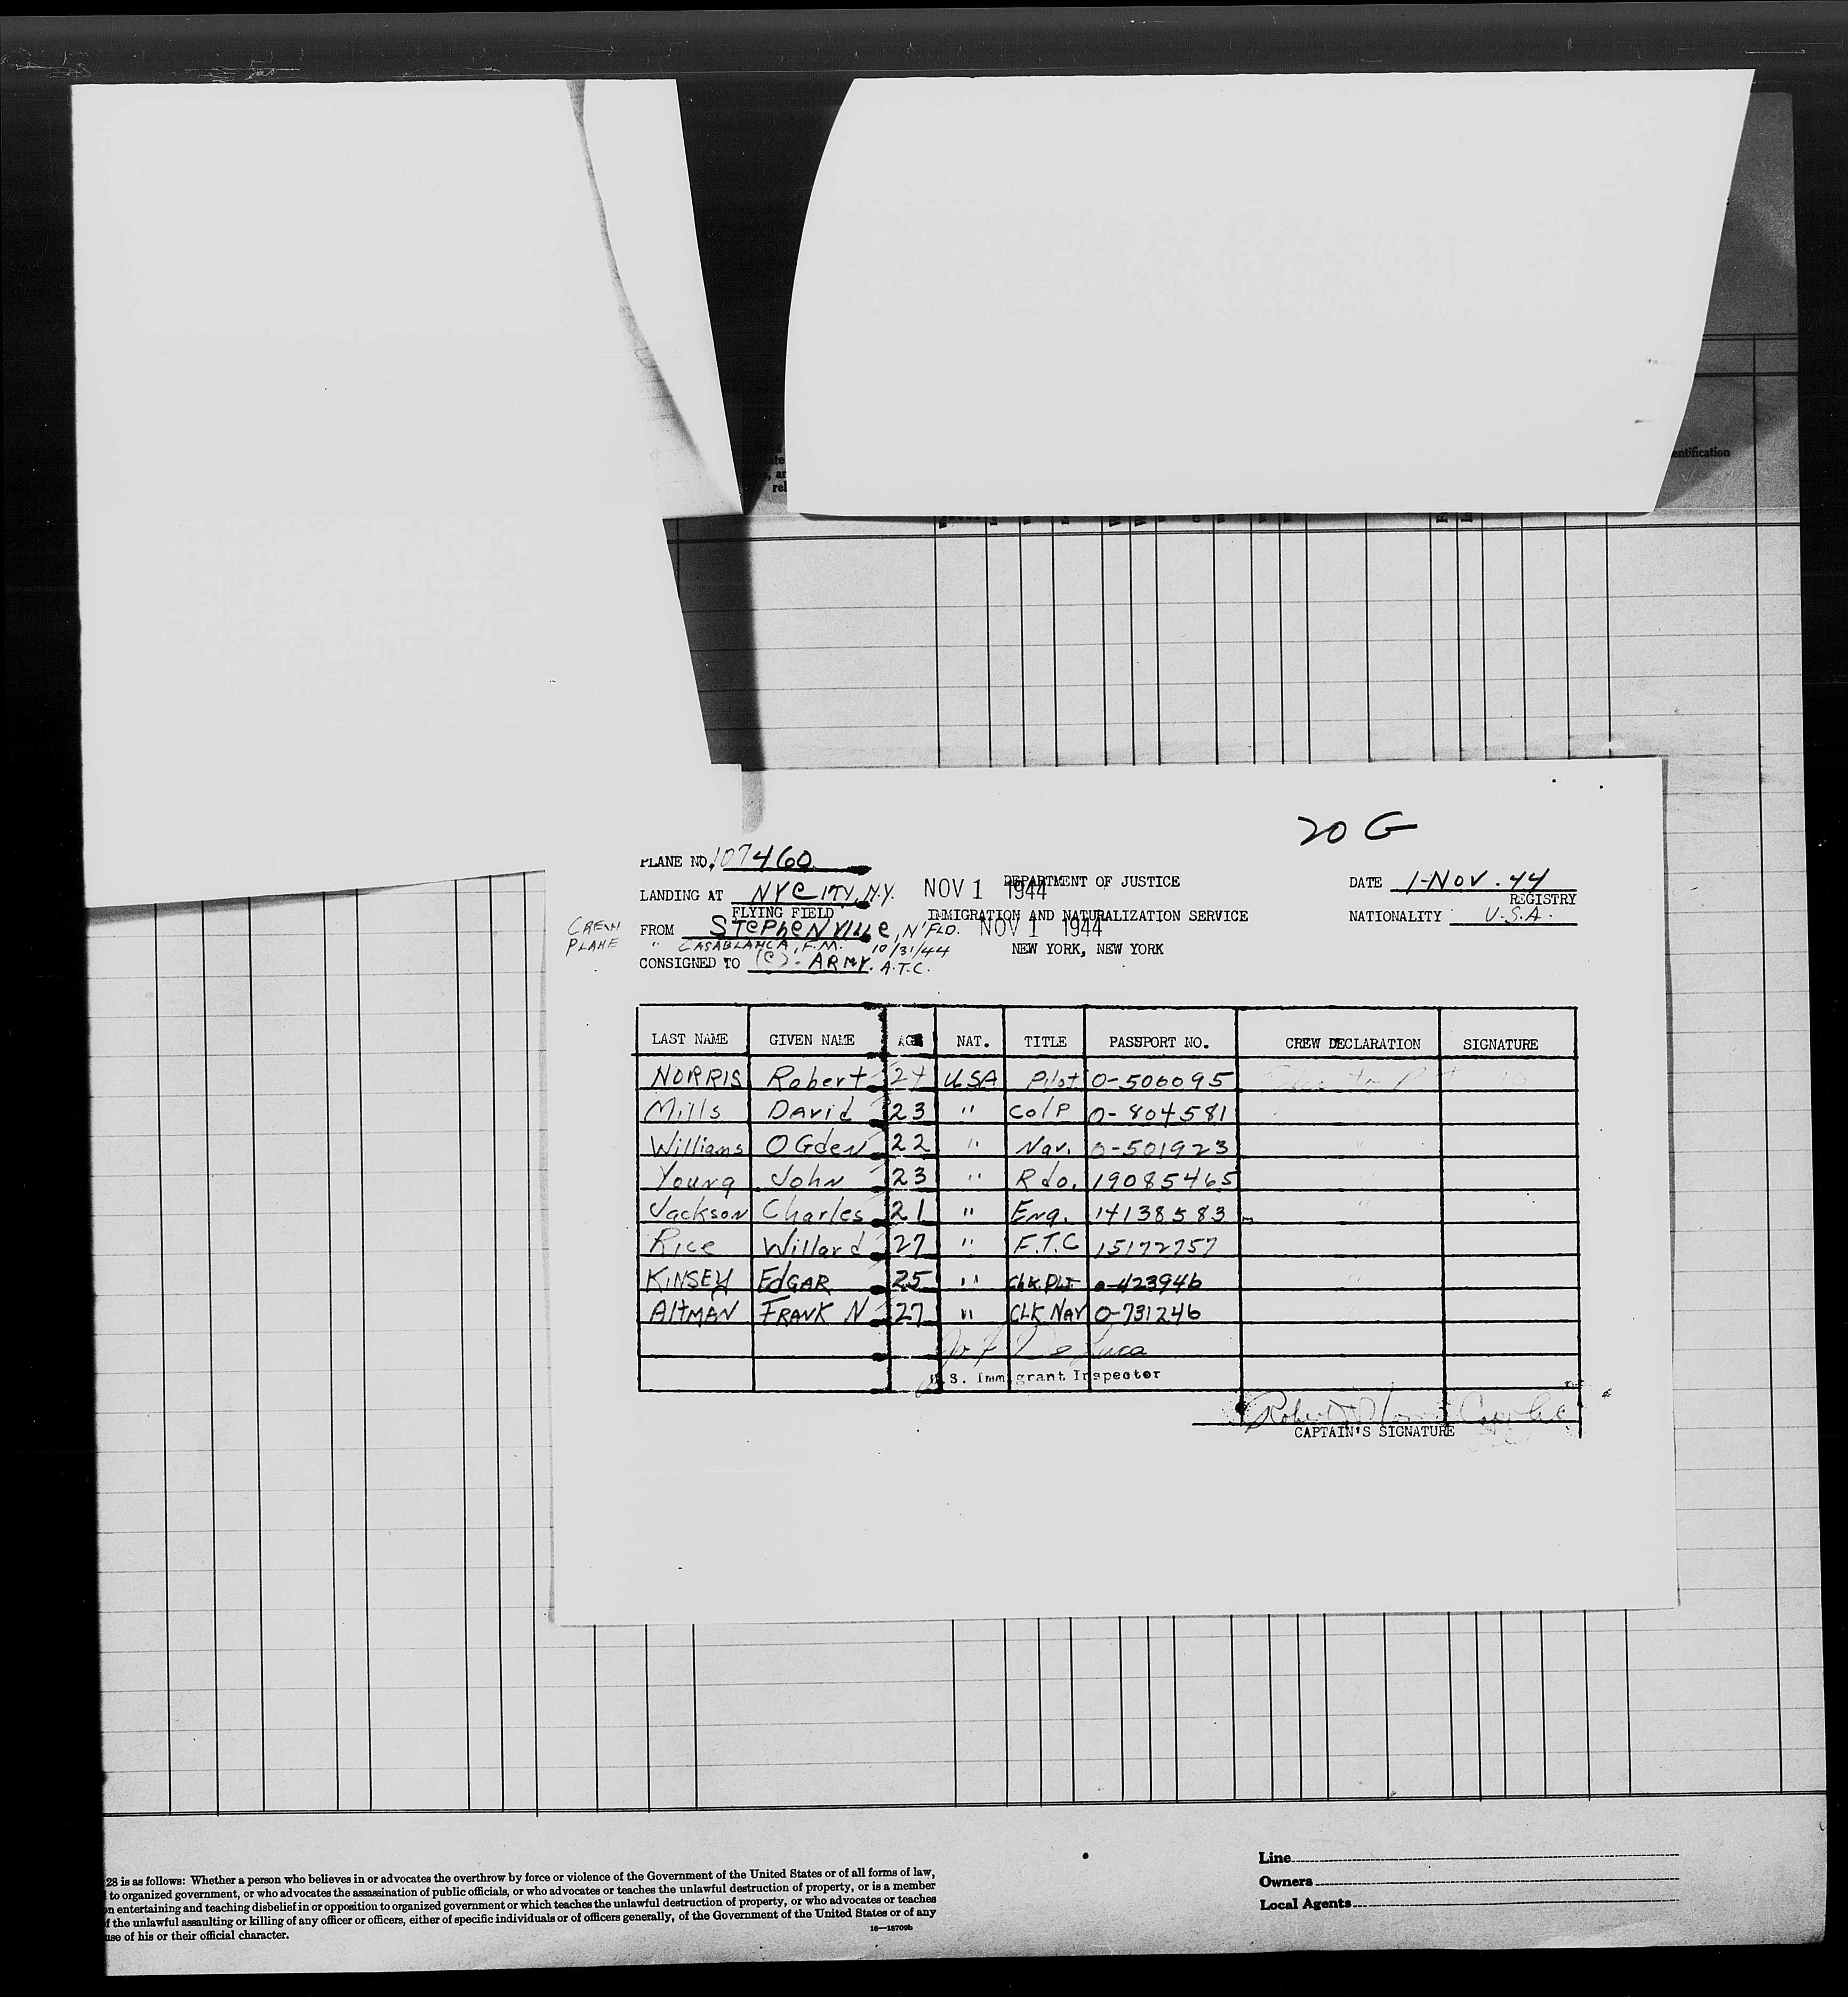 entification
rel
20 G
PLANE NO. 107460
LANDING AT NYCITY, N.Y. NOV 1 1944 DEPARTMENT OF JUSTICE DATE 1-NOV.44
FLYING FIELD REGISTRY
CREW FROM STEPHENVILLE, N'FLD. IMMIGRATION AND NATURALIZATION SERVICE NOV 1 1944 NATIONALITY U.S.A.
PLANE " CASABLANCA, F.M. 10/31/44 NEW YORK, NEW YORK
CONSIGNED TO (C). ARMY. A.T.C.
LAST NAME GIVEN NAME AGE NAT. TITLE PASSPORT NO. CREW DECLARATION SIGNATURE
NORRIS Robert USA Pilot 0-506095
Mills David 23 " Co/P 0-804581
Williams OGden 22 " Nav. 0-501923
Young John 23 " Rdo. 19085465
Jackson Charles 21 " Eng. 14138583
Rice Willard 27 " F.T.C 15172757
KINSEY EDGAR 25 " Chk.PLT 0-423946
AltMAN FRANK N 27 " CLK NAV 0-731246
De Luca
U.S. Immigrant Inspector
CAPTAIN'S SIGNATURE
28 is as follows: Whether a person who believes in or advocates the overthrow by force or violence of the Government of the United States or of all forms of law,
to organized government, or who advocates the assassination of public officials, or who advocates or teaches the unlawful destruction of property, or is a member
on entertaining and teaching disbelief in or opposition to organized government or which teaches the unlawful destruction of property, or who advocates or teaches
f the unlawful assaulting or killing of any officer or officers, either of specific individuals or of officers generally, of the Government of the United States or of any
use of his or their official character.
16—18709b
Line
Owners
Local Agents